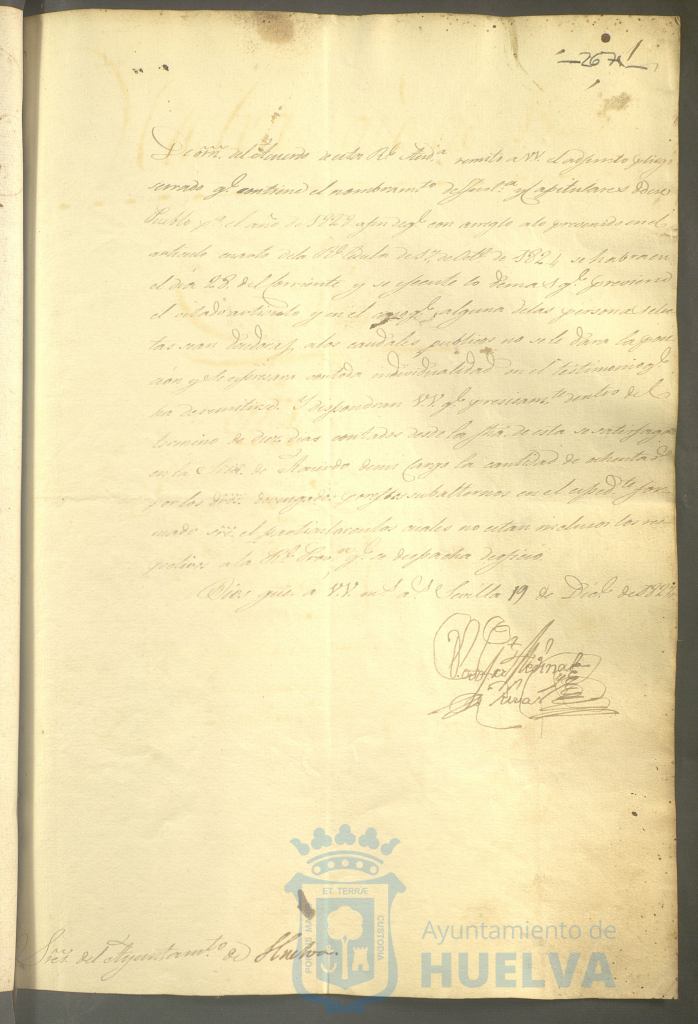 267
De orñ. del Acuerdo de esta Rl. Auda. remito a VV. el adjunto pliego
cerrado qe. contiene el nombramto. de Justa. y Capitulares de ese
Pueblo pa. el año de 1828 a fin de qe. con arreglo a lo prevenido en el
articulo cuarto de la Rl. Cedula de 17 de Obe. de 1824 se habra en
el dia 28 del corriente y se ejecute lo demas qe. previene
el citado articulo y en el caso qe. alguna de las personas elec-
tas sean deudores a los caudales publicos no se le dara la pose-
ción y se espresara con toda individualidad en el testimonio qe.
ha de remitirse. Y dispondran VV. qe. precisamte. dentro del
termino de diez dias contados desde la fha. de esta se satisfaga
en la Sria. de Acuerdo de mi cargo la cantidad de ochenta
por los dros. devengados por sus subalternos en el espedte. for-
mado sre. el particular en los cuales no estan inclusos los res-
pectivos a la qe. se despacha de oficio
Dios gue. a VV. ms. as. Sevilla 19 de Dice. de 182
Sres. del Ayuntamto. de Huelva.
ET TERRÆ
CUSTODIA
Ayuntamiento de
HUELVA